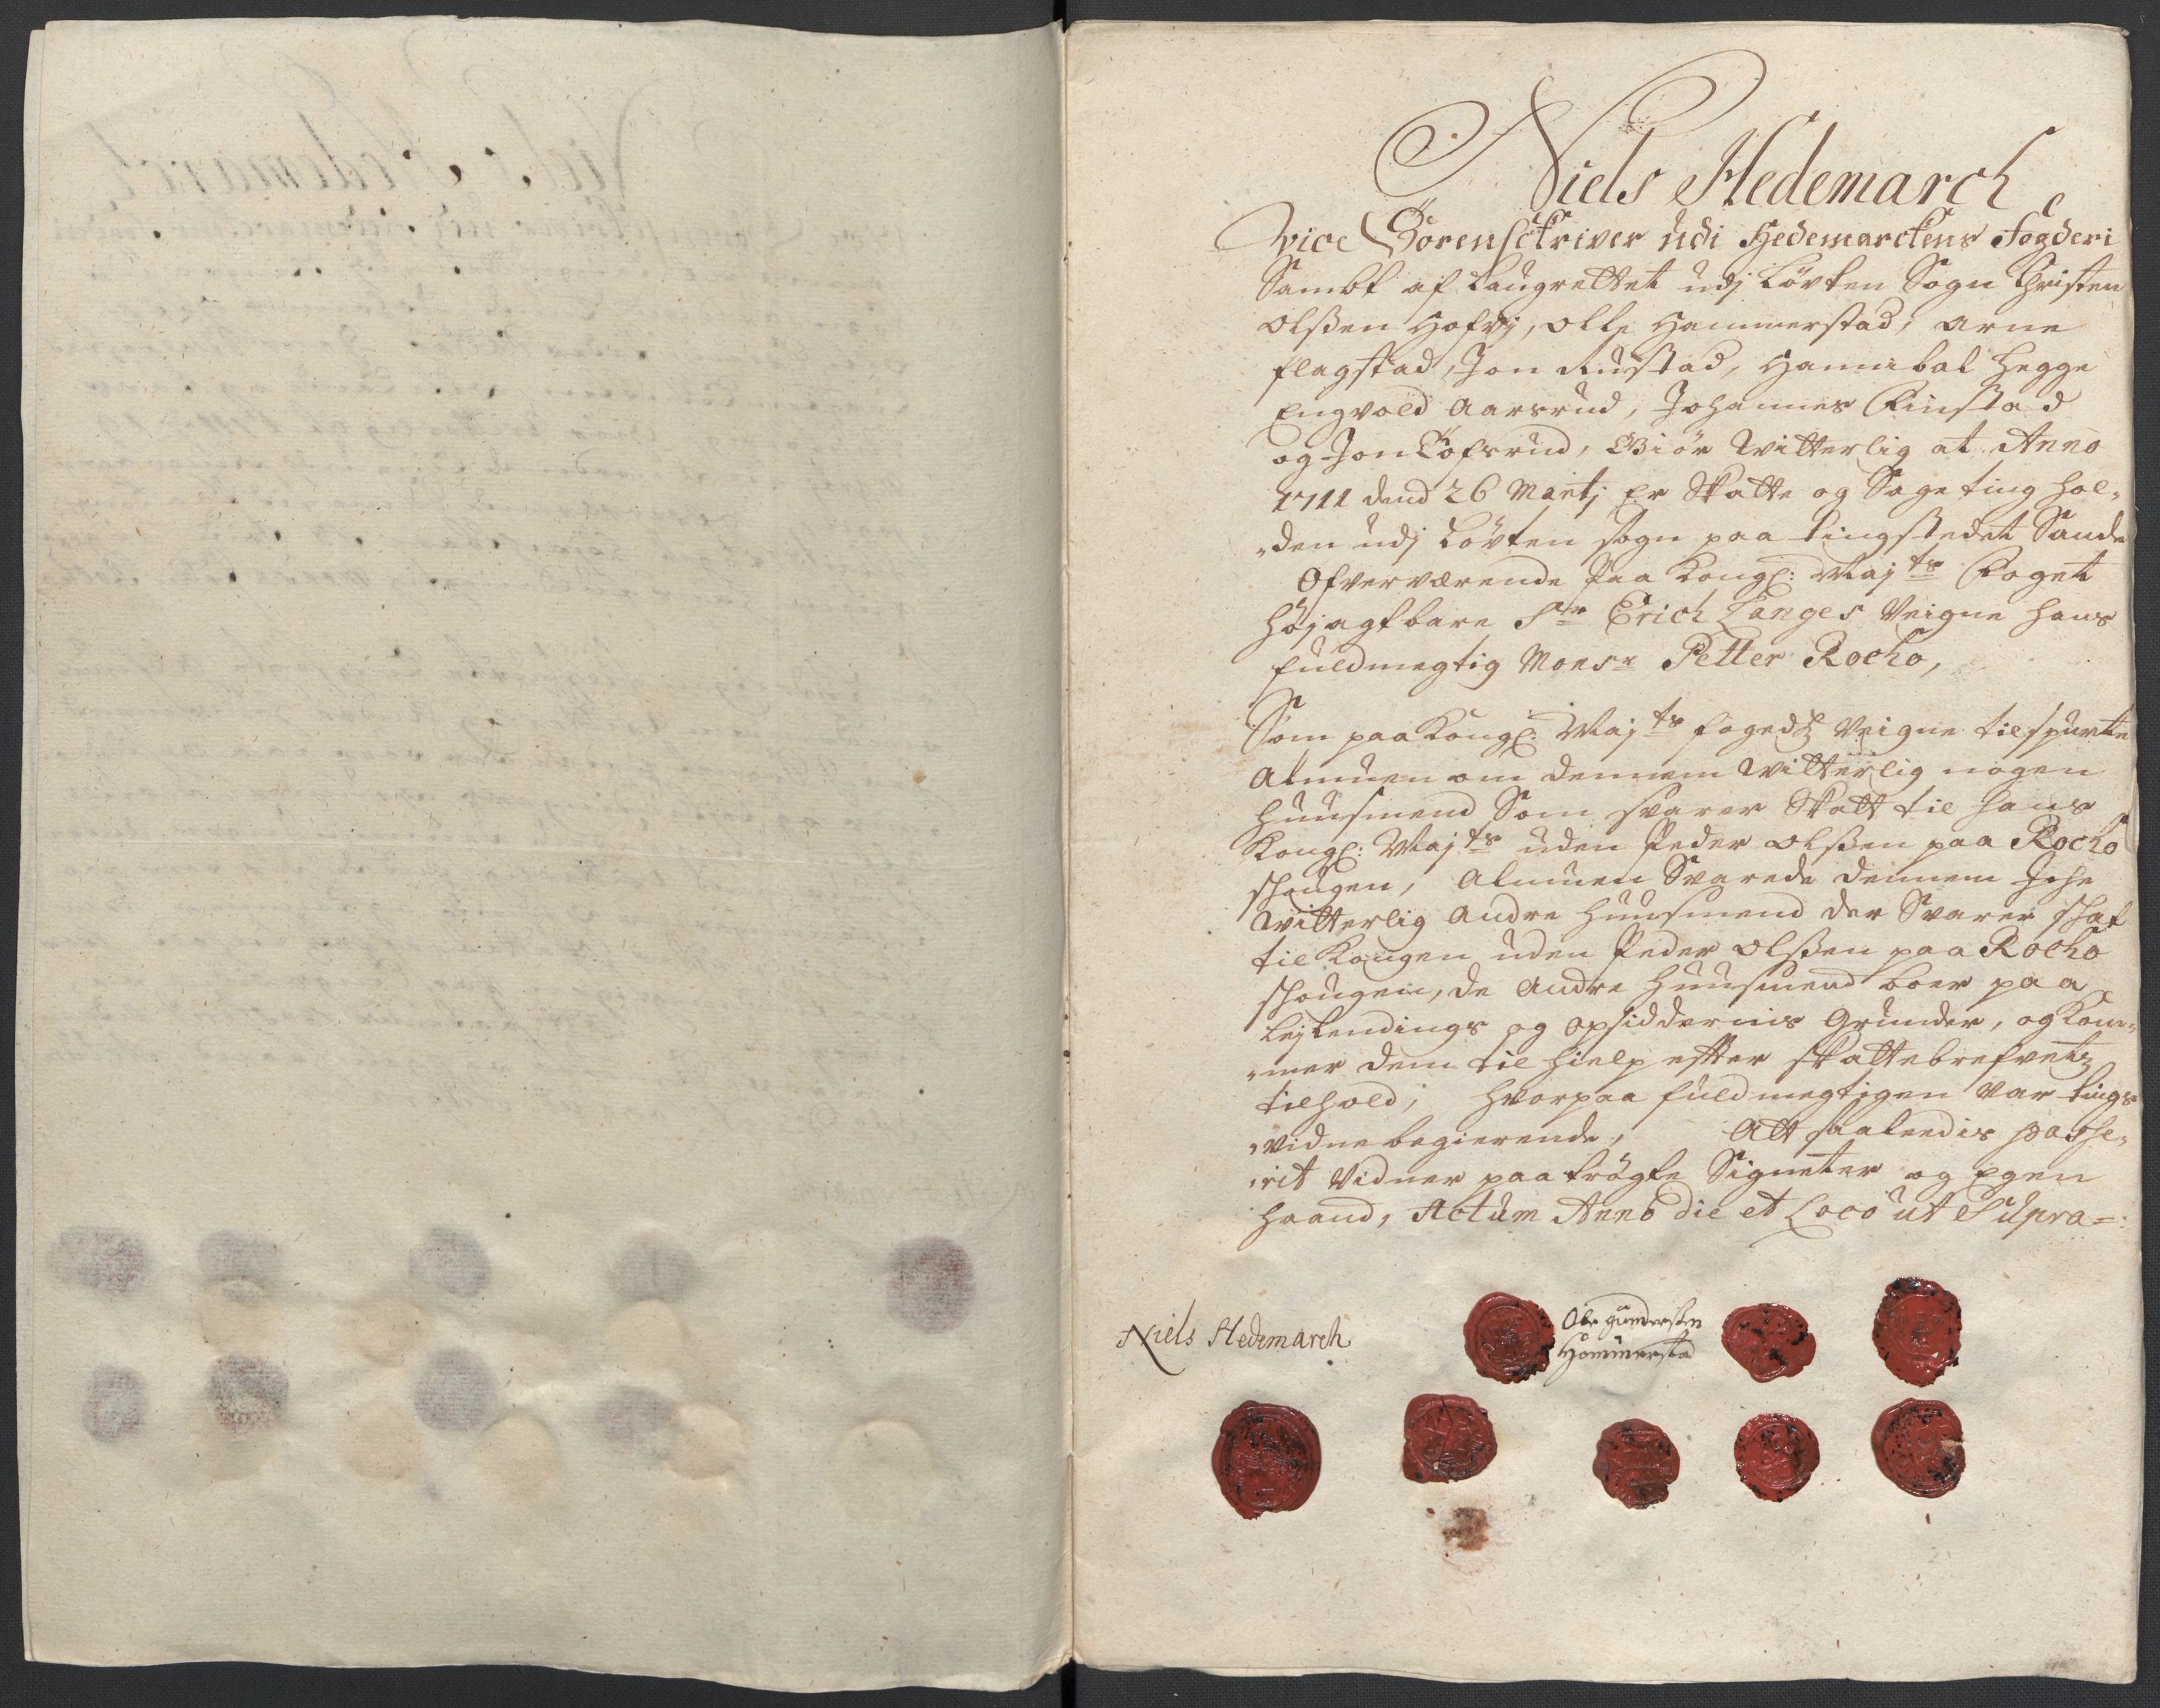 Niels Hedemarch
Vice Sorenschriver udi Hedemarckens Fogderi
Sambt af Laugrettet udj Löyten Sogn Christen
Olsßen Hofvj, Olle Hammerstad, Arne
Flagstad, Jon Rustad, Hannibal Hegge
Engvold Aarsrud, Johannes Finstad
og Jon Tofsrud, Giör Witterlig at Anno
1711 dend 26 Martj er Skatte og Sage ting hol„
„den udj Löyten sogn paa tingstedet Sande
Ofverværende paa Kongl: Majts Foget
Höjagtbare Sr Erich Langes Veigne hans
fuldmegtig Monsr Petter Rocho,
Som paa Kongl: Majts fogedz Veigne tilspurte
Almuen om dennem Witterlig nogen
huusmend Som svarer Skatt til hans
Kongl: Majts uden Peder Olsßen paa Rocho
shougen, Almuen Svarede dennem Iche
Witterlig Andre huusmend der Svarer shat
til Kongen uden Peder Olsßen paa Rocho
shougen, de Andre huusmend boer paa
Lejlendings og Opsiddernis Grunder, og kom„
„mer dem til hielp efter skattebrefvetz
tilhold, hvorpaa fuldmegtigen var tings
„vidne begierende, Att saaleedis passe„
„rit Vidner paa trögte Signeter og Egen
haand, Actum Anno die et Loco ut Supra
Niels Hedemarch
Ole gundersßen
Hommerstad